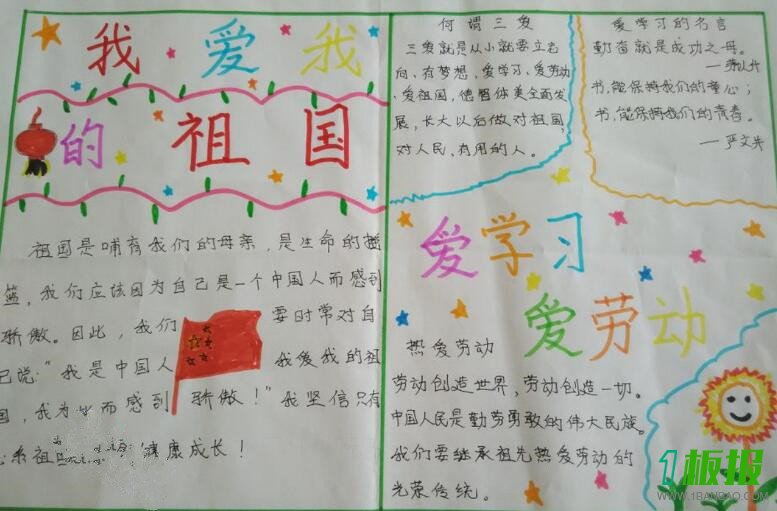 我爱我
的祖国
祖国是哺育我们的母亲,是生命的摇
篮,我们应该因为自己是一个中国人而感到
骄傲。因此,我们要时常对自
己说:“我是中国人 我爱我的祖
国,我为 而感到 骄傲!”我坚信只有
心系祖 健康成长!
何谓三爱
三爱就是从小就要立志
向、有梦想,爱学习、爱劳动
、爱祖国,德智体美全面发
展,长大以后做对祖国,
对人民,有用的人。
爱学习的名言
勤奋就是成功之母。
书,能保持我们的童心;
书,能保持我们的青春。
——严文井
爱学习
爱劳动
热爱劳动
劳动创造世界,劳动创造一切。
中国人民是勤劳勇敢的伟大民族。
我们要继承祖先热爱劳动的
光荣传统。
1板报
WWW.1BANBAO.COM